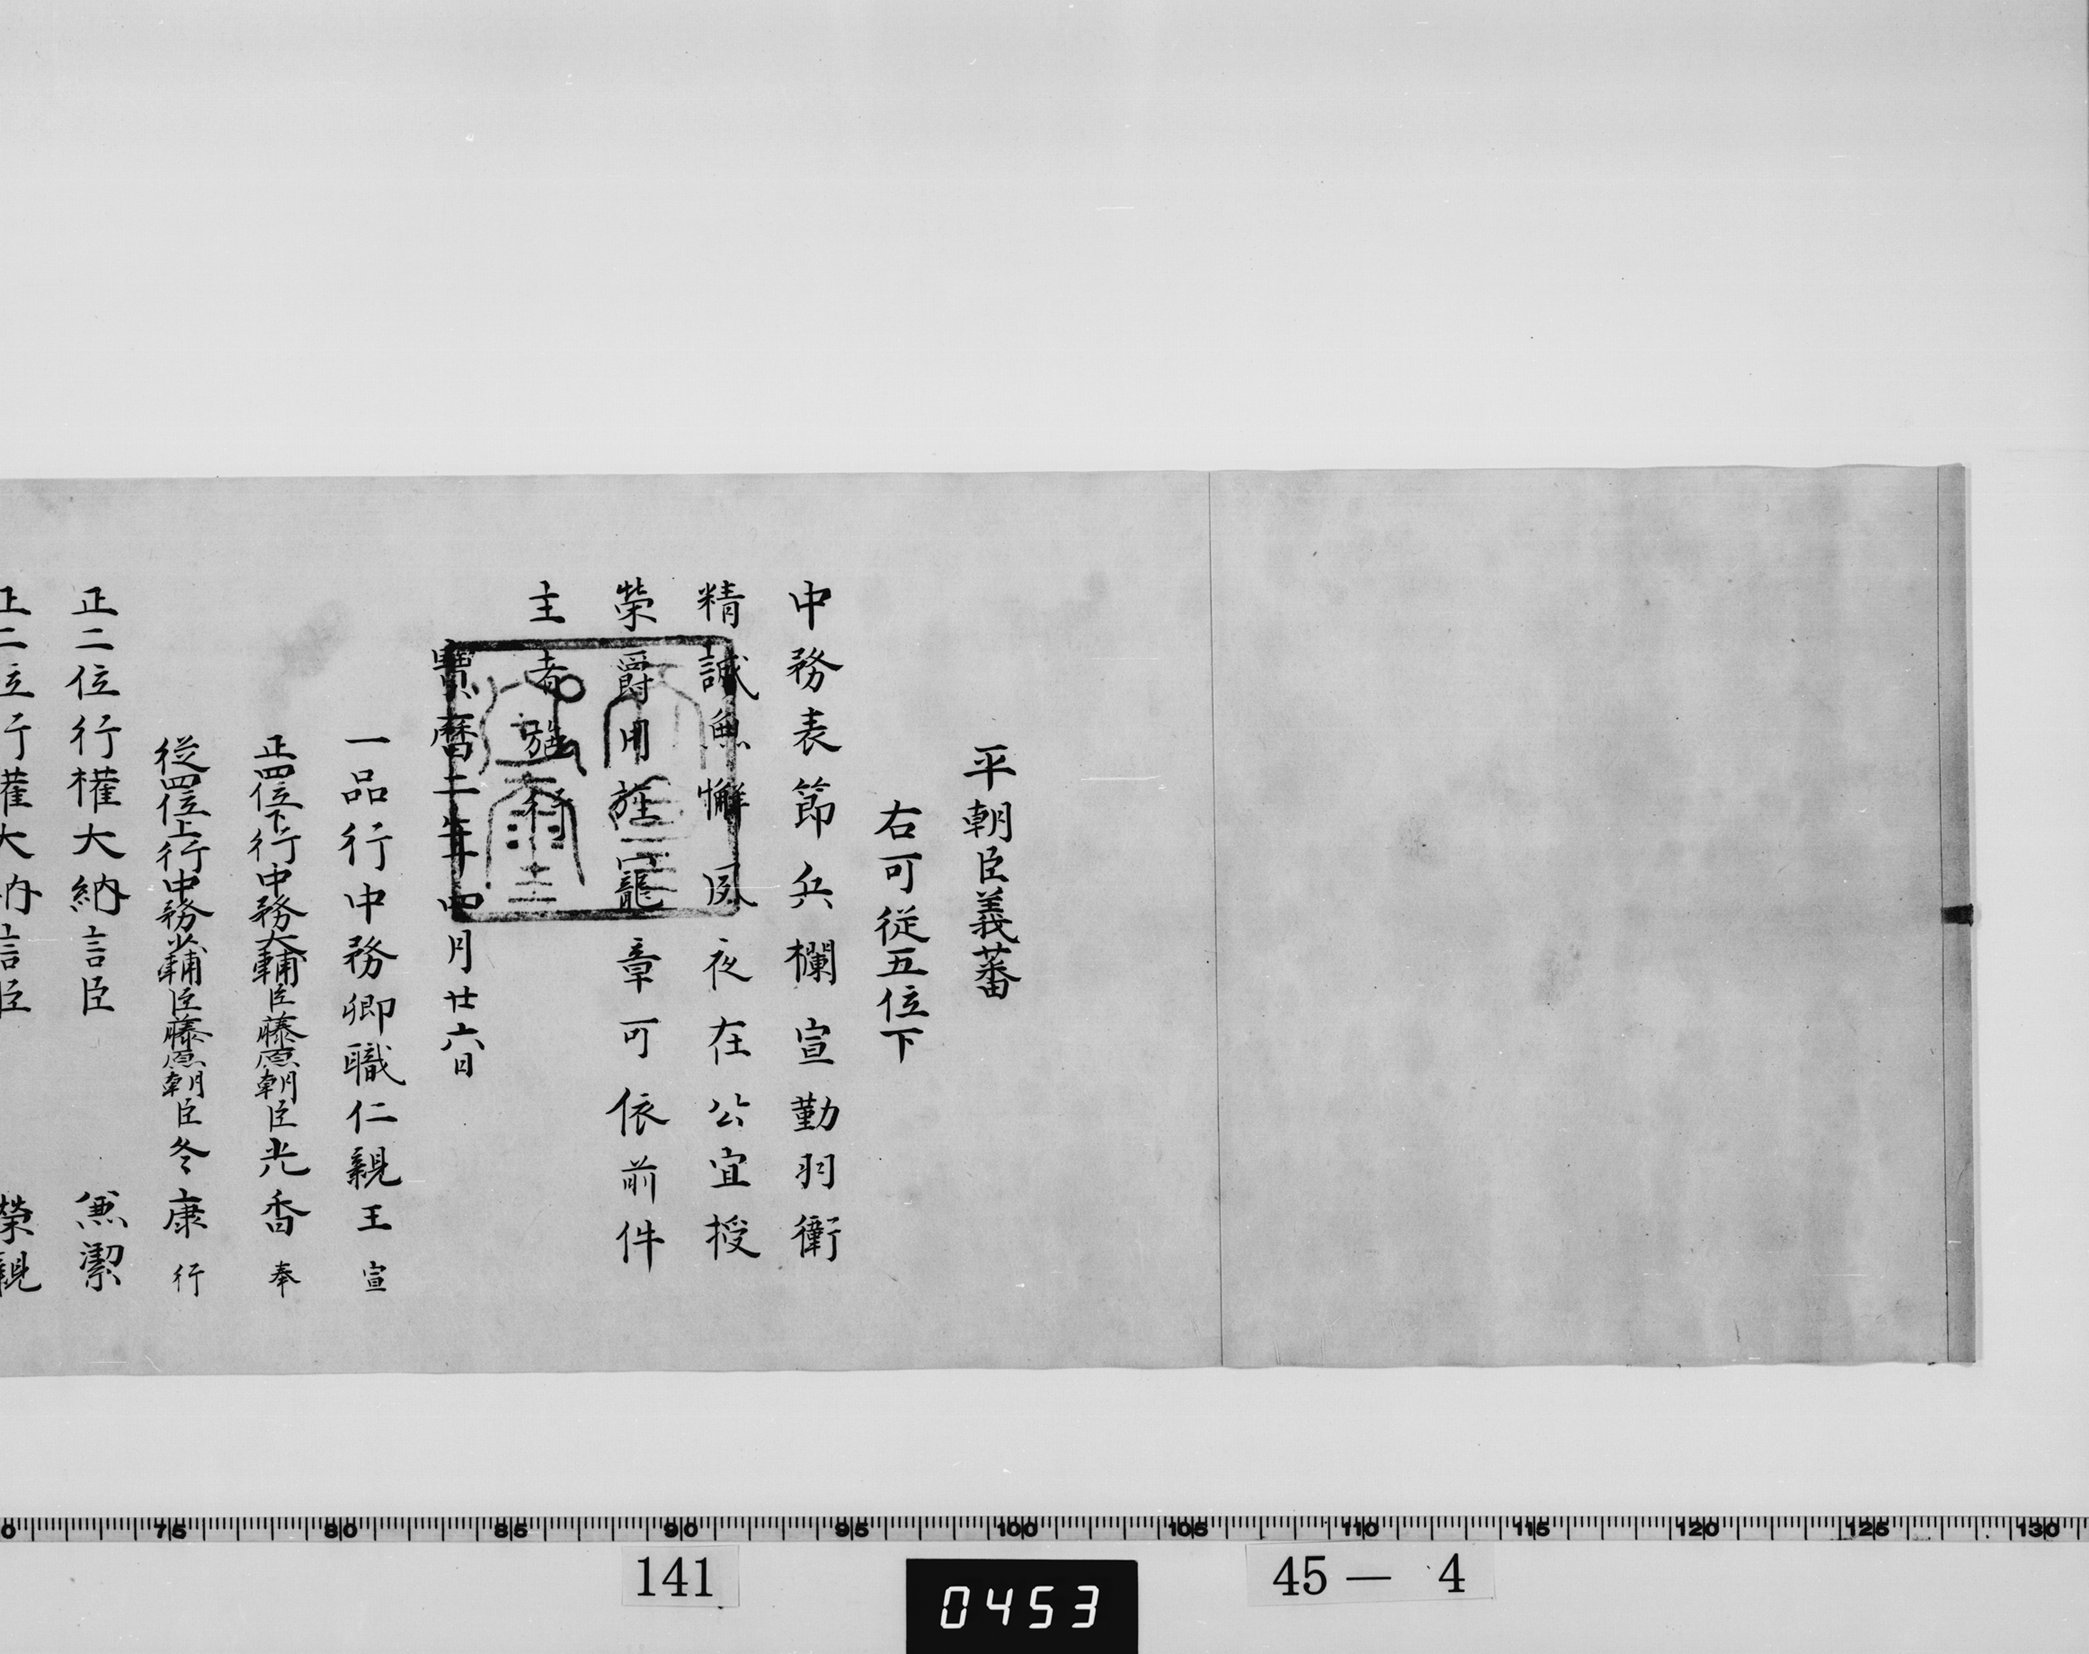 平朝臣義蕃
右可從五位下
中務表節兵欄宣勤羽衛
精誠無懈夙夜在公宜授
榮爵用旌寵章可依前件
主者施行
寶曆二年四月廿六日
一品行中務卿職仁親王宣
正四位下行中務大輔臣藤原朝臣光香奉
從四位上行中務少輔臣藤原朝臣冬康行
正二位行權大納言臣 兼潔
正二位行權大納言臣 榮親
70 75 80 85 90 95 100 105 110 115 120 125 130
141 0453 45— 4